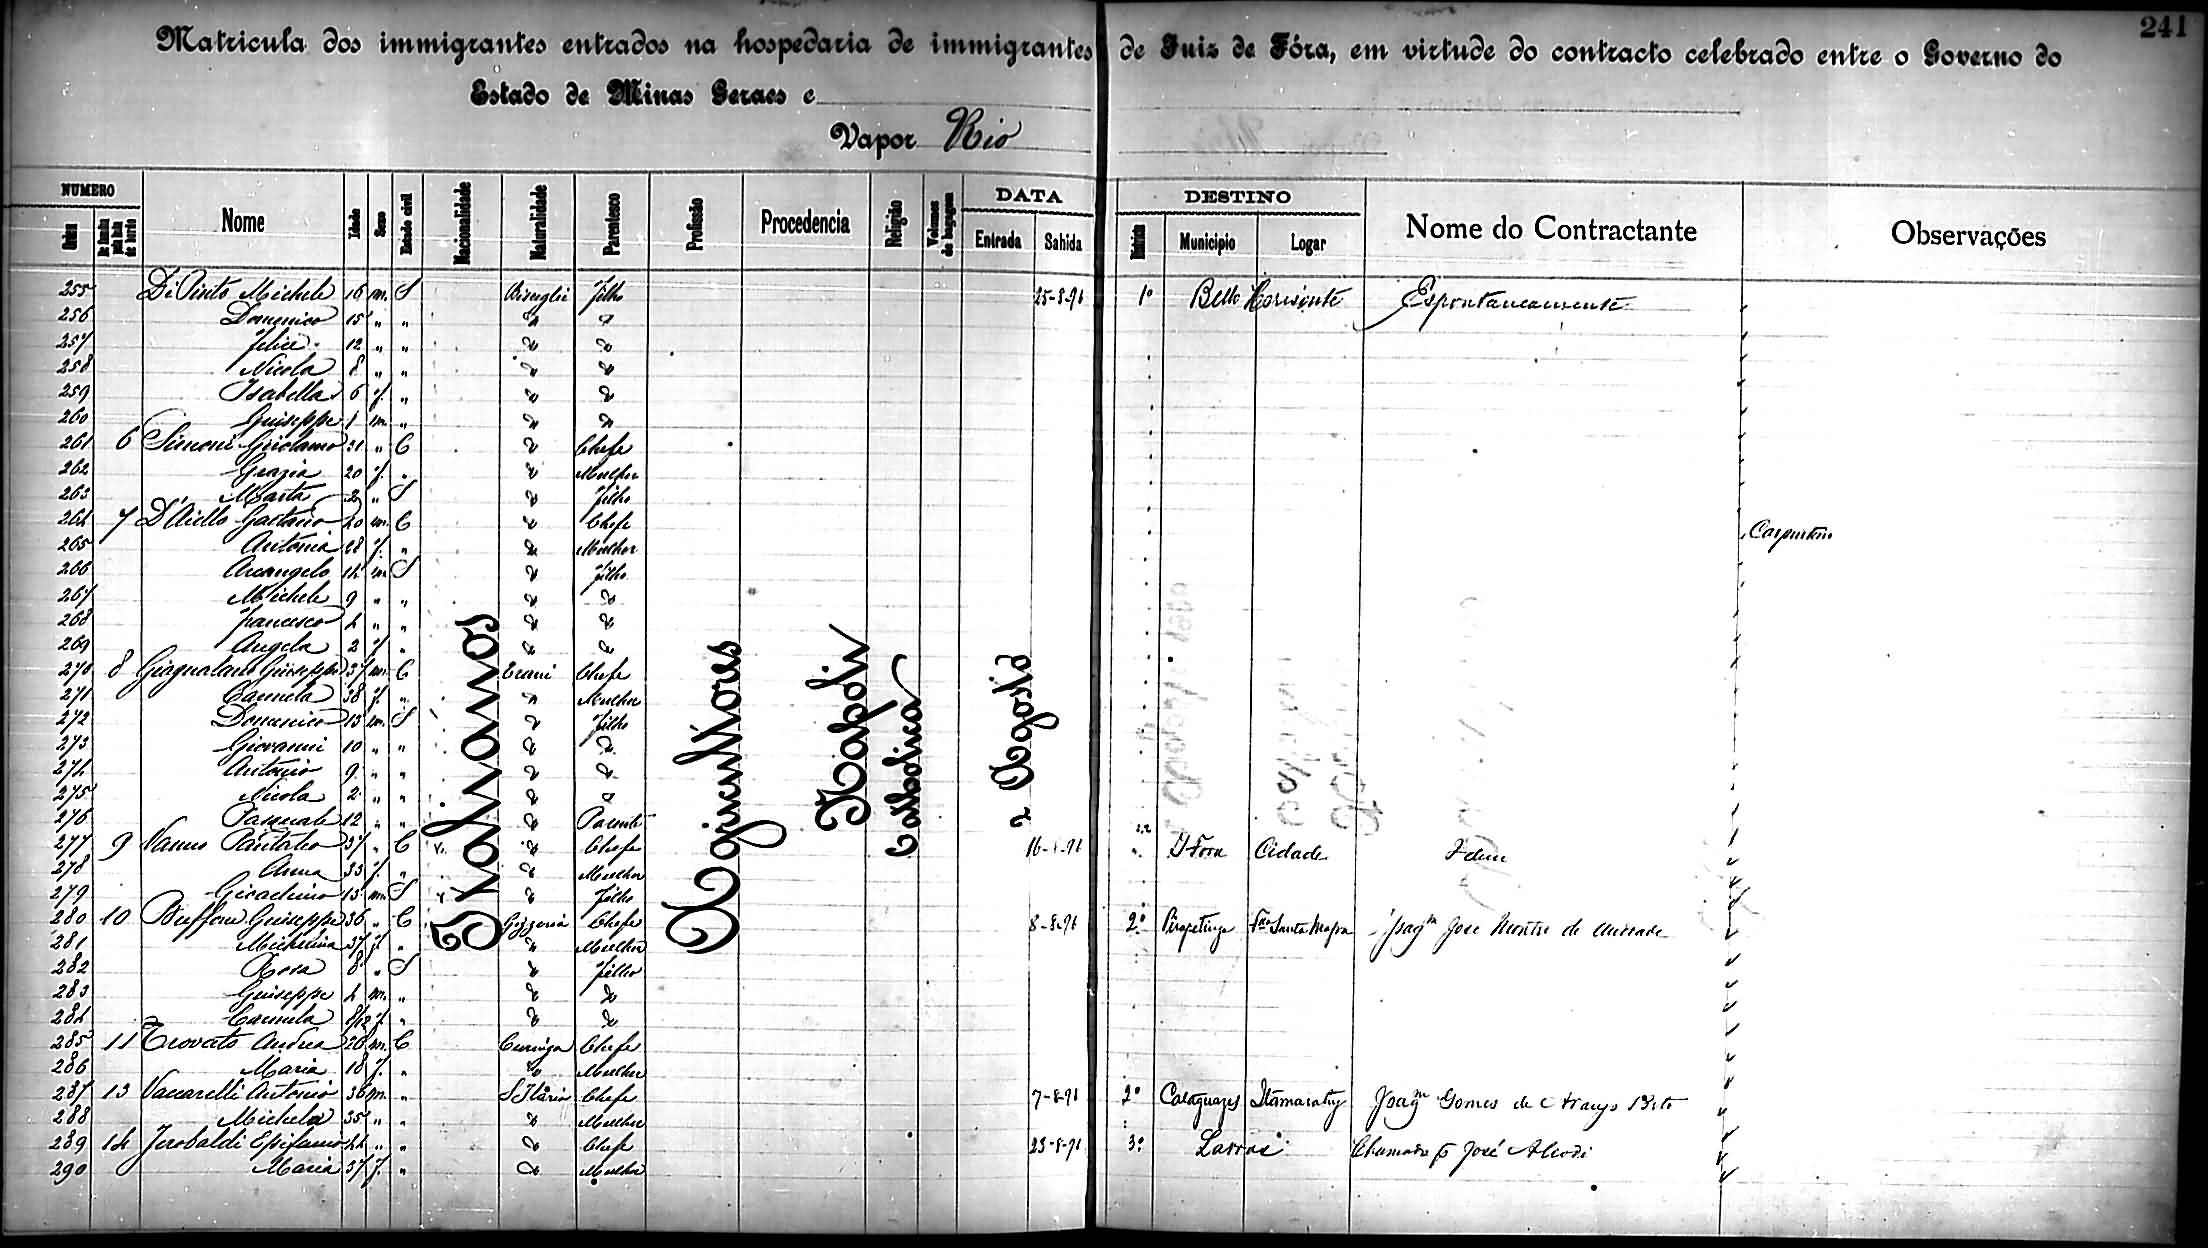 241
Matricula dos immigrantes entrados na hospedaria de immigrantes de Juiz de Fóra, em virtude do contracto celebrado entre o Governo do
Estado de Minas Geraes e
Vapor Rio
NUMERO Nome Idade Sexo Estado civil Nacionalidade Naturalidade Parentesco Profissão Procedencia Religião Volumes de bagagem DATA DESTINO Nome do Contractante Observações
Ordem Entrada Sahida Municipio Logar
Italianos Agricultores Napoli Catholica 2 Agosto
255 Di Pinto Michele 16 m. S Bisceglie filho 25-8-96 1º Bello Horisonte Espontaneamente
256 Domenico 15 " "
257 Felice 12 " "
258 Nicola 8 " "
259 Isabella 6 f. "
260 Guiseppe 1 m. "
261 6 Simoni Girolamo 31 " C Chefe
262 Grazia 20 f. " Mulher
263 Marta 2 " S filho
264 7 D'Aiello Gaetano 20 m. C Chefe Carpinteiro
265 Antonia 28 f. " Mulher
266 Arcangelo 14 m S filho
267 Michele 9 " "
268 Francesco 4 " "
269 Angela 2 f "
270 8 Giuseppe 37 m. C Trani Chefe
271 Carmela 38 f. " Mulher
272 Domenico 13 m. S filho
273 Giovanni 10 " "
274 Antonio 9 " "
275 Nicola 2 " "
276 Pasquale 12 " " Parente
277 9 Pantaleo 37 " C Chefe 16-8-96 " J Fora Cidade Idem
278 Anna 33 f. " Mulher
279 Gioachino 13 m. S filho
280 10 Buffone Guiseppe 36 " C Gizzeria Chefe 8-8-96 2º Pirapetinga Fda Santa Joaqm José de Andrade
281 Michelina 37 f. " Mulher
282 Rosa 8 " S filho
283 Guiseppe 4 m. "
284 Carmela 8/12 f. "
285 11 Trovato Andrea 26 m. C Curinga Chefe
286 Maria 18 f. " Mulher
287 13 Vaccarelli Antonio 36 m. " S Ilario Chefe 7-8-96 2º Cataguazes Itamaraty Joaqm Gomes de Araujo Porto
288 Michela 35 " " Mulher
289 14 Epifanio 44 " " Chefe 23-8-96 3º Lavras Chamado p José
290 Maria 37 f. " Mulher